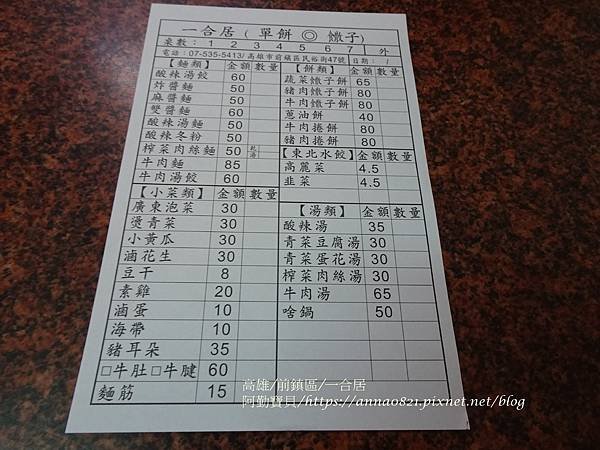 一合居 ( 單餅 ◎ 馓子)
桌數： 1 2 3 4 5 6 7 外
電話：07-535-5413/高雄市前鎮區民裕街47號 日期： /
【麵類】 金額 數量
酸辣湯餃 60
炸醬麵 50
麻醬麵 50
雙醬麵 60
酸辣湯麵 50
酸辣冬粉 50
榨菜肉絲麵 50 乾 湯
牛肉麵 85
牛肉湯餃 60
【小菜類】 金額 數量
廣東泡菜 30
燙青菜 30
小黃瓜 30
滷花生 30
豆干 8
素雞 20
滷蛋 10
海帶 10
豬耳朵 35
□牛肚□牛腱 60
麵筋 15
【餅類】 金額 數量
蔬菜馓子餅 65
豬肉馓子餅 80
牛肉馓子餅 80
蔥油餅 40
牛肉捲餅 80
豬肉捲餅 80
【東北水餃】 金額 數量
高麗菜 4.5
韭菜 4.5
【湯類】 金額 數量
酸辣湯 35
青菜豆腐湯 30
青菜蛋花湯 30
榨菜肉絲湯 30
牛肉湯 65
啥鍋 50
高雄/前鎮區/一合居
阿勤寶貝/https://anna0821.pixnet.net/blog